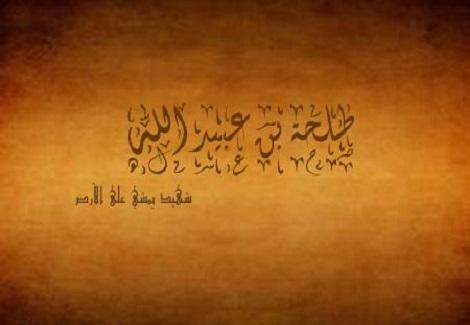 طلحة بن عبيد الله
شهيد يمشي على الأرض